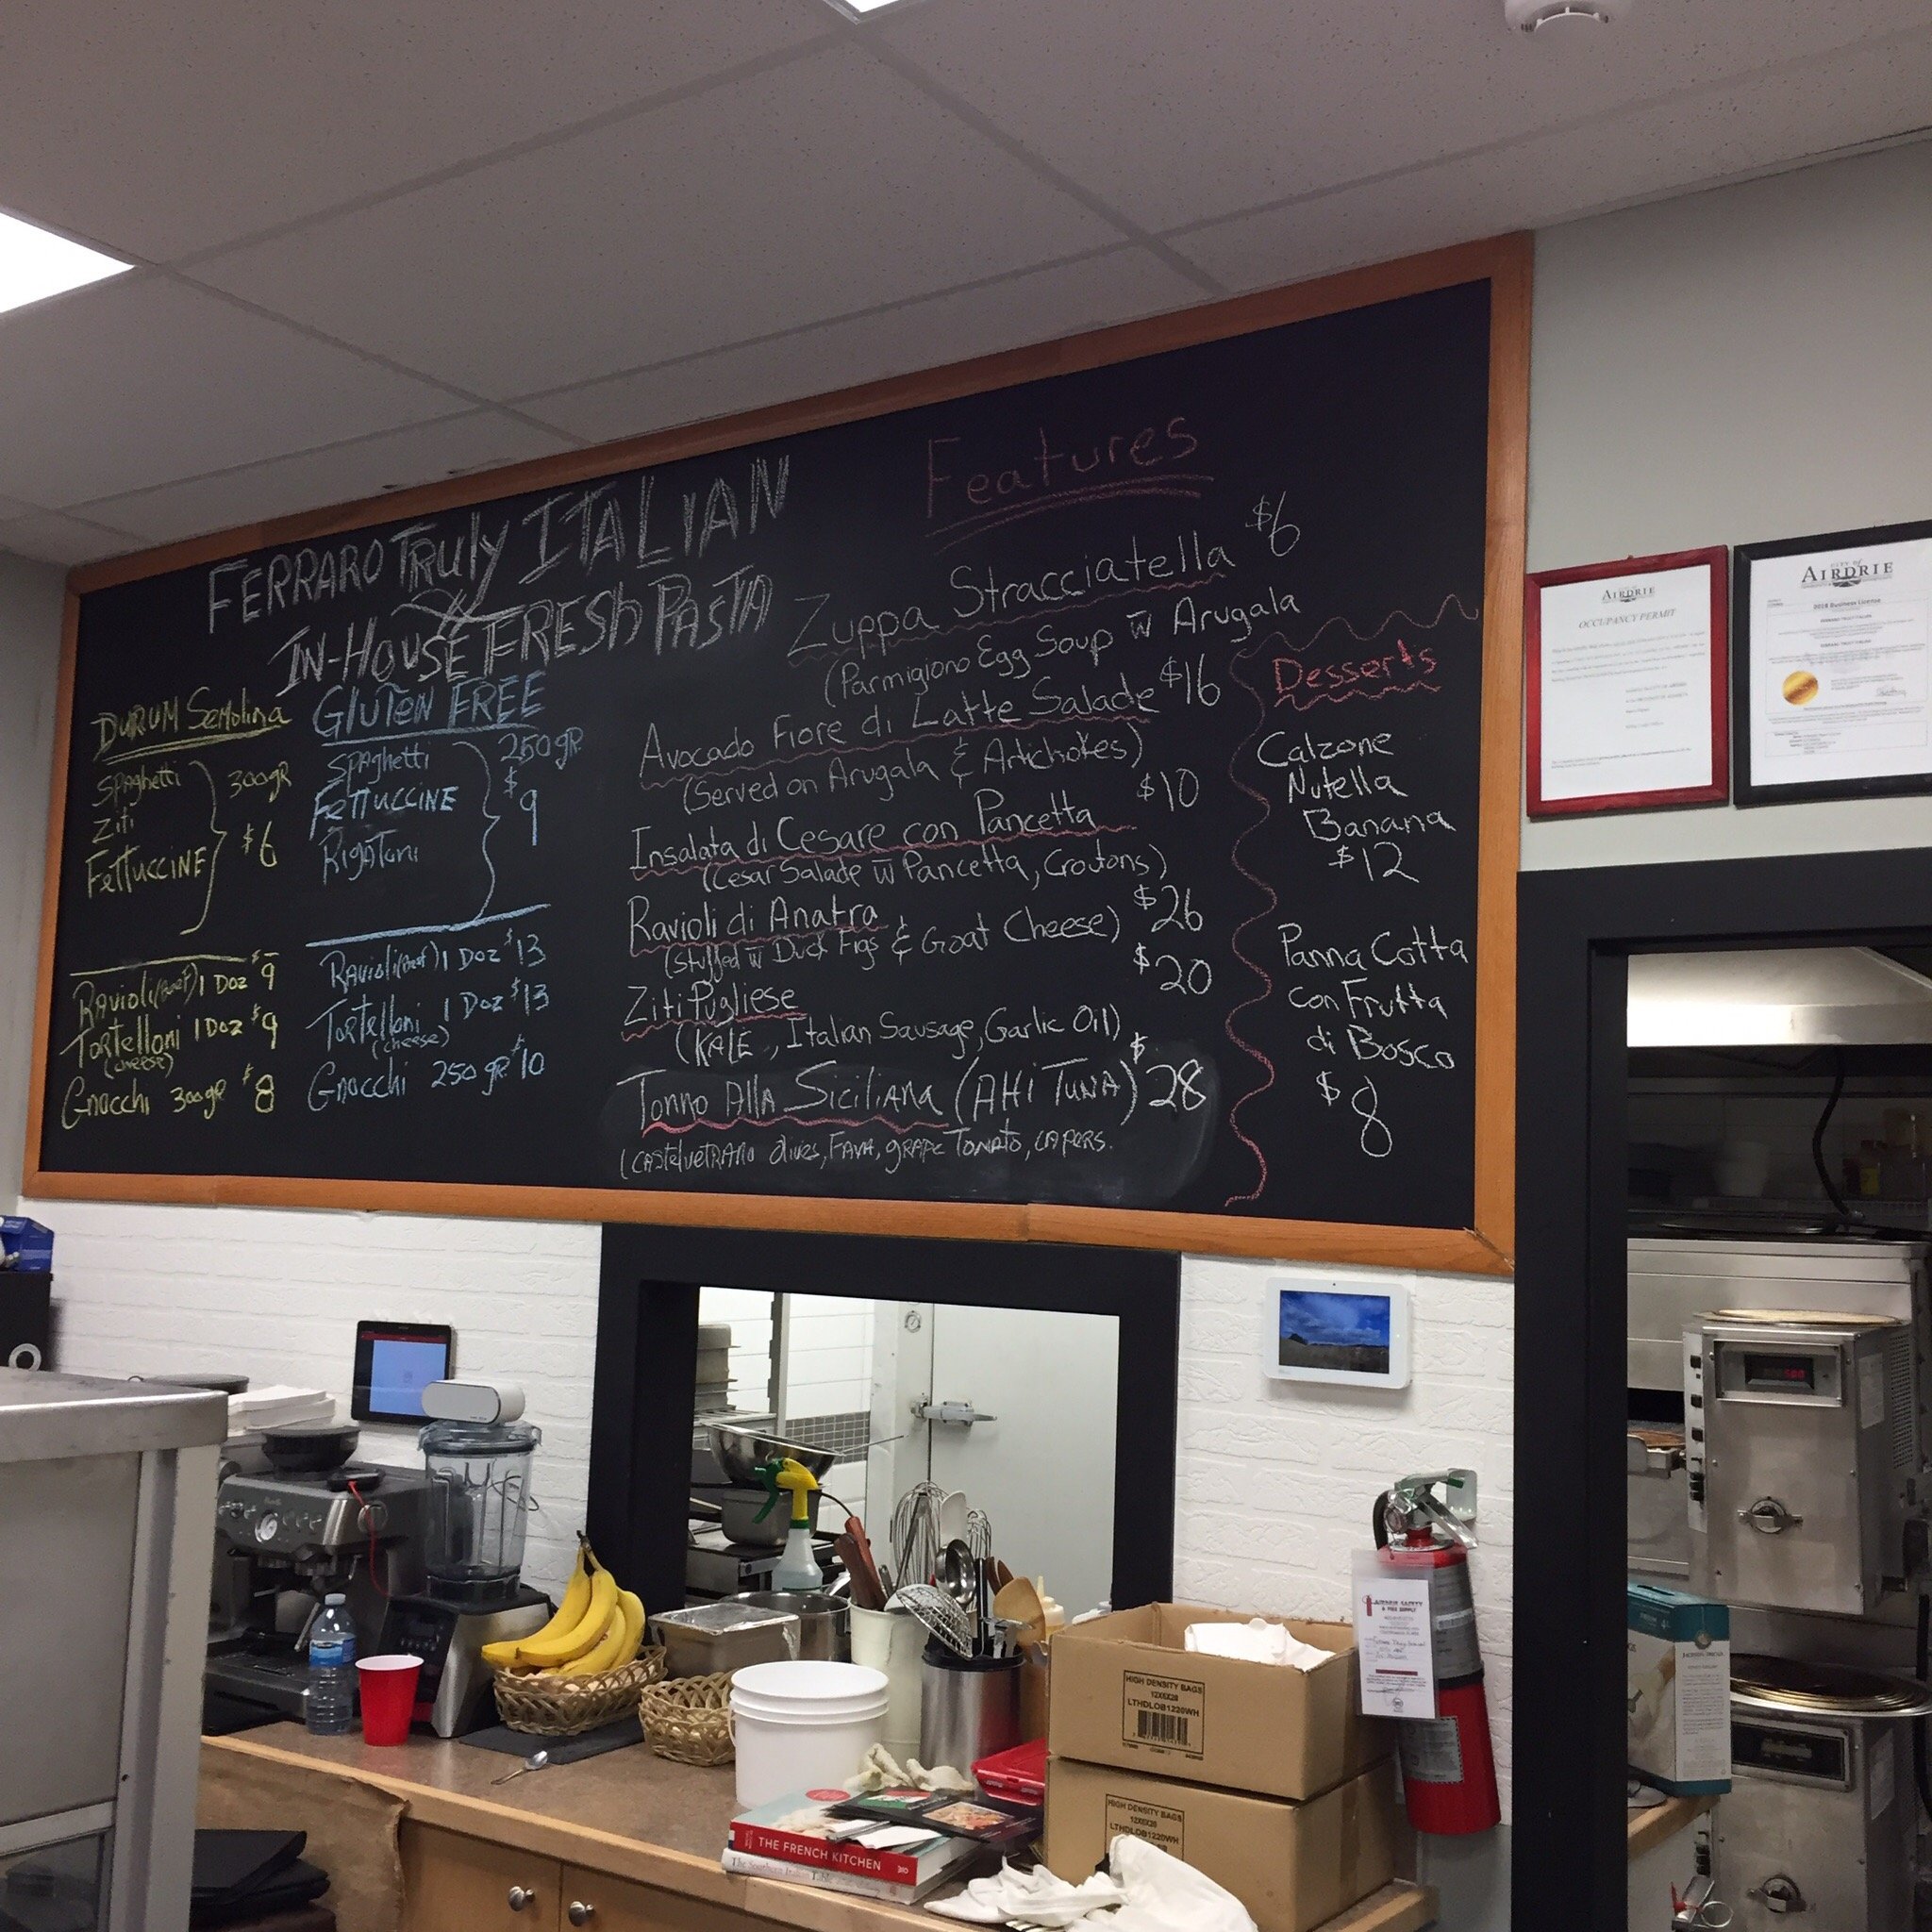 FERRARO TRULY ITALIAN
IN-HOUSE FRESH PASTA
DURUM Semolina
Spaghetti
Ziti
FeTTUCCINE
300gR
$6
Ravioli (Beef) 1 Doz $9
Tortelloni 1 Doz $9
(cheese)
Gnocchi 300gr $8
GLUTeN FREE
Spaghetti
FeTTUCCINE
RigaToni
250gR
$9
Ravioli (Beef) 1 Doz $13
Tortelloni 1 Doz $13
(cheese)
Gnocchi 250 gr $10
Features
Zuppa Stracciatella $6
(Parmigiono Egg Soup w Arugala
Avocado Fiore di Latte Salade $16
(Served on Arugala & Artichokes)
Insalata di Cesare con Pancetta $10
(Cesar Salade w Pancetta, Croutons)
Ravioli di Anatra $26
(stuffed w Duck Figs & Goat Cheese)
Ziti Pugliese $20
(KALE, Italian Sausage, Garlic Oil)
Tonno Alla Siciliana (AHi TUNA) $28
(CASTelveTRANo olives, FAVA, gRAPe TomATo, CAPERS.
Desserts
Calzone
Nutella
Banana
$12
Panna Cotta
con Frutta
di Bosco
$8
CITY of
AIRDRIE
OCCUPANCY PERMIT
CITY of
AIRDRIE
2018 Business License
AIRDRIE SAFETY
& FIRE SUPPLY
HIGH DENSITY BAGS
12X8X28
LTHDLOB1220WH
HIGH DENSITY BAGS
12X8X28
LTHDLOB1220WH
THE FRENCH KITCHEN
The Southern Italian Table